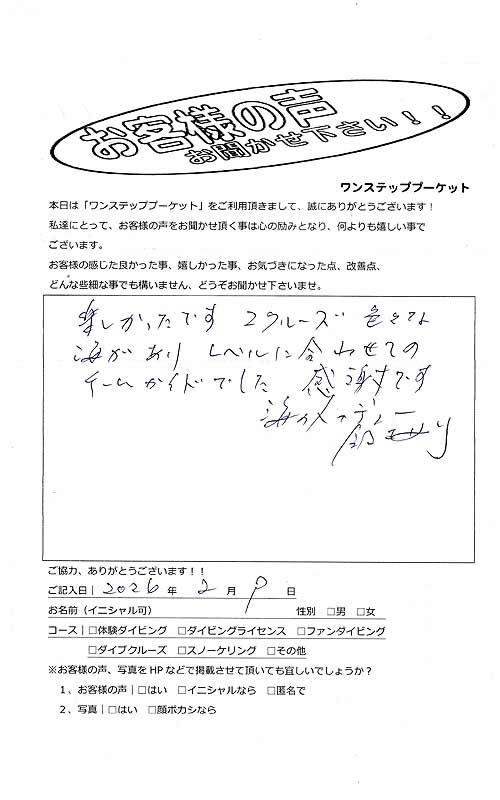 お客様の声
お聞かせ下さい！！
ワンステッププーケット
本日は「ワンステッププーケット」をご利用頂きまして、誠にありがとうございます！
私達にとって、お客様の声をお聞かせ頂く事は心の励みとなり、何よりも嬉しい事で
ございます。
お客様の感じた良かった事、嬉しかった事、お気づきになった点、改善点、
どんな些細な事でも構いません、どうぞお聞かせ下さいませ。
楽しかったです 2クルーズ 色々な
海があり レベルに合わせての
チームガイドでした 感謝です
海の
ご協力、ありがとうございます！！
ご記入日｜2026 年 2 月 9 日
お名前（イニシャル可） 性別 □男 □女
コース｜□体験ダイビング □ダイビングライセンス □ファンダイビング
□ダイブクルーズ □スノーケリング □その他
※お客様の声、写真をHPなどで掲載させて頂いても宜しいでしょうか？
1、お客様の声｜□はい □イニシャルなら □匿名で
2、写真｜□はい □顔ボカシなら